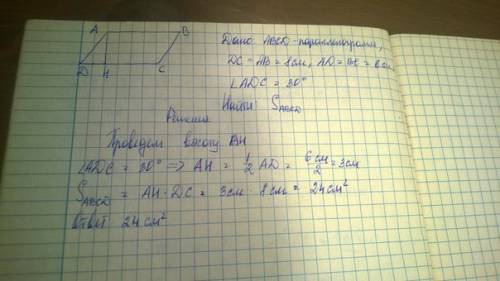 A B
D H C
Дано: ABCD - параллелограмм,
DC = AB = 8см, AD = BC = 6см
∠ADC = 30°
Найти: S_ABCD
Решение
Проведем высоту BH
∠ADC = 30° => AH = 1/2 AD = 6см/2 = 3см
S_ABCD = AH · DC = 3см · 8см = 24см²
Ответ 24см²